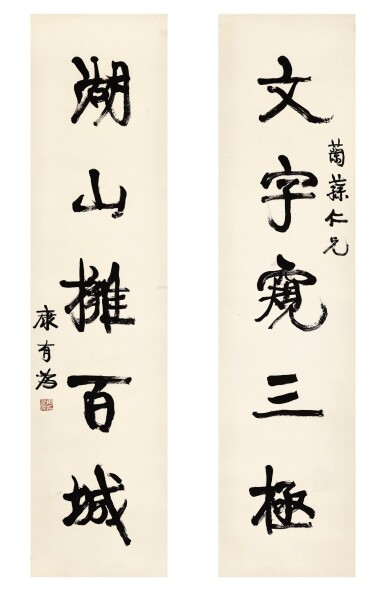 文字窺三極
蘭蓀仁兄
湖山擁百城
康有為